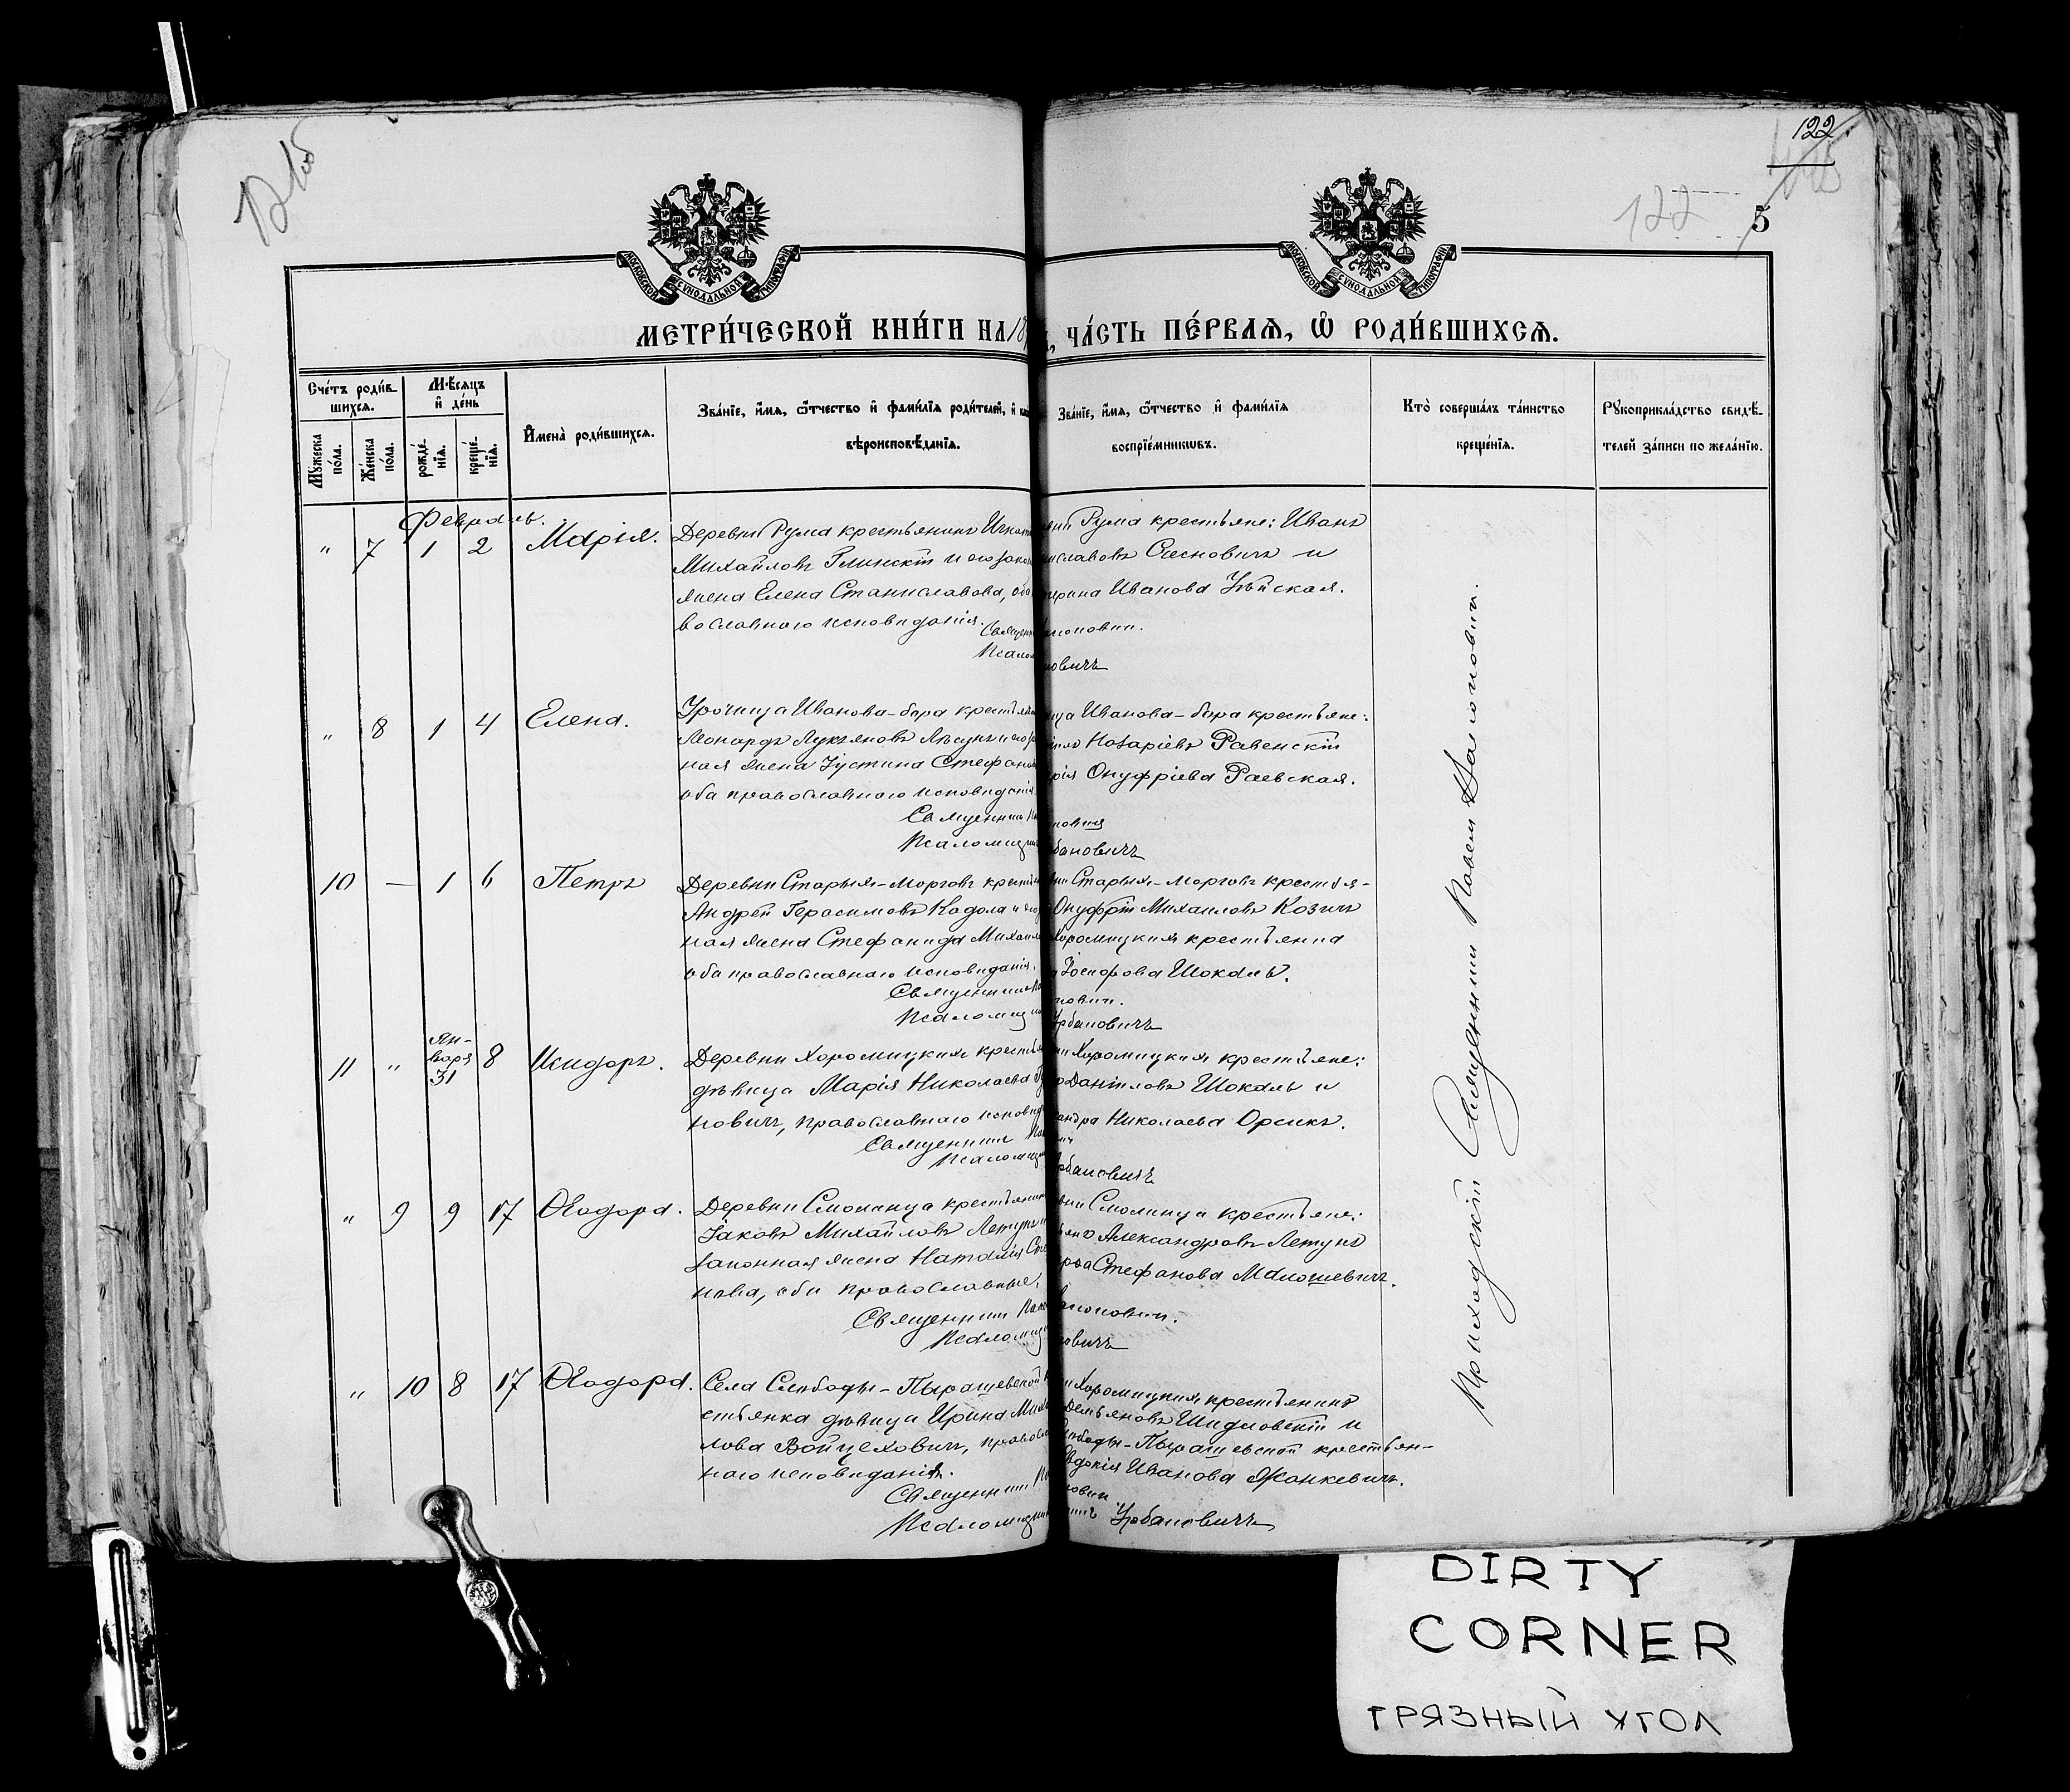 122
122
5
МОСКОВСКОЙ СѴНОДАЛЬНОЙ ТИПОГРАФІИ
МОСКОВСКОЙ СѴНОДАЛЬНОЙ ТИПОГРАФІИ
МЕТРИ́ЧЕСКОЙ КНИ́ГИ НА 18
ЧА́СТЬ ПЕ́РВАѦ, Ѽ РОДИ́ВШИХСѦ.
Сче́тъ роди́в-
шихсѧ.
Мꙋ́жеска
по́ла.
Же́нска
по́ла.
Мѣ́сѧцъ
и҆ де́нь
рожде́-
нїѧ.
креще́-
нїѧ.
И҆мена̀ роди́вшихсѧ.
Зва́нїе, и҆́мѧ, ѻ҆́тчество и҆ фами́лїѧ роди́телей, и҆
вѣроисповѣ́данїѧ.
Зва́нїе, и҆́мѧ, ѻ҆́тчество и҆ фами́лїѧ
воспрїе́мникѡвъ.
Кто̀ соверша́лъ та́инство
креще́нїѧ.
Рꙋкоприкла́дство свидѣ́-
телей за́писи по жела́нїю.
Февраль.
" 7 1 2 Марія.
Деревни Рума крестьянинъ Игнат
Михайловъ Глинскій и его закон
жена Елена Станиславова, оба
вославнаго исповѣданія.
Священн
Псалом
Рума крестьяне: Иванъ
иславовъ Сосновичъ и
ерина Иванова Уѣйская.
новичъ
" 8 1 4 Елена.
Урочища Иванова-бора крестьян
Леонардъ Лукьяновъ Лѣсунъ и его за
ная жена Іустина Стефанов
оба православнаго исповѣданія.
Священникъ
Псаломщик
ща Иванова-бора крестьяне:
Назаріевъ Равенскій
рія Онуфріева Раевская.
бановичъ
10 — 1 6 Петръ
Деревни Старыхъ-Морговъ крестья
Андрей Герасимовъ Кадола и его
ная жена Стефанида Михаил
оба православнаго исповѣданія.
Священникъ
Псаломщи
ни Старыхъ-Морговъ крестья-
Онуфрій Михаиловъ Козичъ
Хоромицкихъ крестьянка
Іосифова Шокаль.
Урбановичъ
11 " Января 31 8 Исидоръ.
Деревни Хоромицкихъ крестья
дѣвица Марія Николаева
новичъ, православнаго исповѣд
Священникъ
Псаломщ
ни Хоромицкихъ крестьяне:
Даніиловъ Шокаль и
андра Николаева Орсикъ.
рбановичъ
" 9 9 17 Ѳеодора.
Деревни Смолница крестьянинъ
Іаковъ Михайловъ Летунъ и
законная жена Наталія Сте
нова, оба православные.
Священникъ
Псаломщ
вни Смолница крестьяне:
Александровъ Летунъ
Стефанова Малошевичъ.
новичъ
" 10 8 17 Ѳеодора.
Села Слободы-Пырашевской к
стьянка дѣвица Ирина Миха
лова Войцеховичъ, правосл
наго исповѣданія.
Священникъ
Псаломщи
ни Хоромицкихъ крестьянинъ
Демьяновъ Шидловскій и
Слободы-Пырашевской крестьян-
Евдокія Иванова Жанкевичъ.
Урбановичъ
Приходскій Священникъ Павелъ
DIRTY
CORNER
ГРЯЗНЫЙ УГОЛ